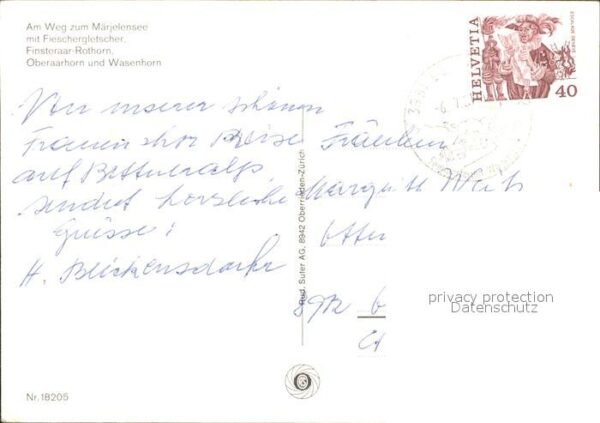 Am Weg zum Märjelensee
mit Fieschergletscher,
Finsteraar-Rothorn,
Oberaarhorn und Wasenhorn
HELVETIA
40
Von unserer schönen
Frauenchor Reise
auf Bettmeralp
sendet herzliche
Grüsse!
H. Blickensdorfer
Fräulein
Margrith
8942 Oberrieden-Zürich
Rud. Suter AG,
privacy protection
Datenschutz
Nr. 18205